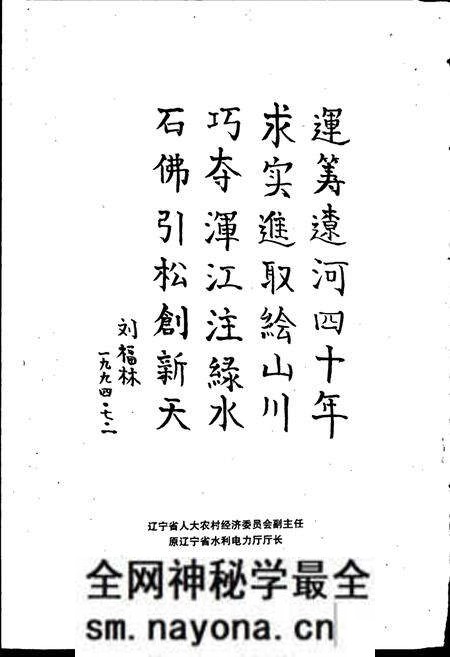 運籌遼河四十年
求实進取絵山川
巧夺渾江注緑水
石佛引松創新天
刘福林
一九九四·七·二
辽宁省人大农村经济委员会副主任
原辽宁省水利电力厅厅长
全网神秘学最全
sm.nayona.cn